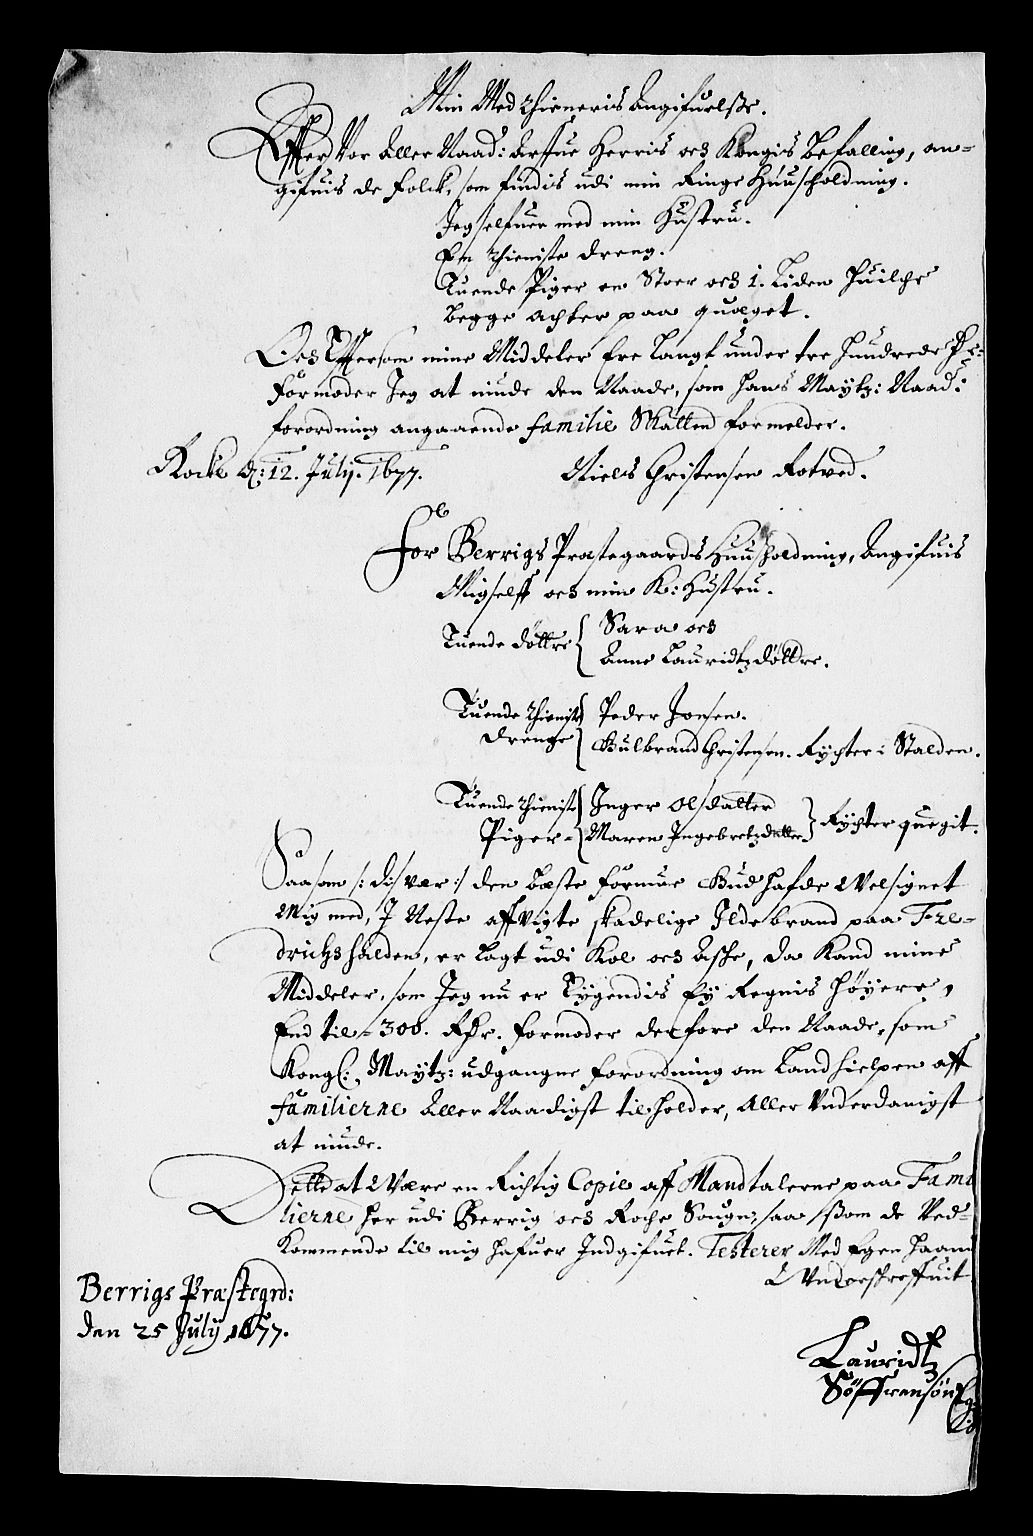 Min Med thieneris Angifuelsse.
Effter Vor Aller Naad: Arffue Herris och Kongis befalling, an-
gifuis de folck, som findis udi min Ringe Huusholdning.
Jeg selfuer med min Hustru.
En thieniste dreng.
Tuende Piger en Stoer och 1. Liden huilche
begge achter paa quæget.
Och Efftersom mine Middeler Ere langt under tre hundrede
formoder Jeg at niude den Naade, som hans Maytz: Naad:
forordning angaaende familie Skatten formelder.
Rocke d: 12. Julij. 1677. Niels Christensen Rotved.
For Berrigs Præstegaards Huusholdning, Angifuis
Migselff och min K: Hustru.
Tuende döttre { Sara och
Anne Lauridtzdöttre.
Tuende thieniste { Peder Jonsen.
drenge Gulbrand Christensen. Rychter i Stalden.
Tuende thieniste { Inger Olsdatter
Piger - Maren Ingebretzdatter } Rychter quegit.
Saasom /: disvær :/ den beste formue Gud hafde Velsignet
Mig med, I Neste affvigte skadelige Ildebrand paa Fre-
drichshalden, er lagt udi Kol och Aske, da kand mine
Middeler, som Jeg nu er Eygendis Ey Regnis höyere,
End til - 300. Rdr. formoder derfore den Naade, som
Kongl: Maytz: udgangne forordning om Landhielpen aff
familierne Aller Naadigst tilholder, Aller Underdanigst
at niude.
Dette at Være en Richtig Copie aff Mandtalerne paa Fami
lierne her udi Berrig och Rocke Sougn, saa ssom de Ved-
kommende til mig hafuer Indgifuet. Testerer Med Egen haand
Underschreffuit
Berrigs Præstegrd:
den 25 July 1677.
Lauridtz
Söffrensön